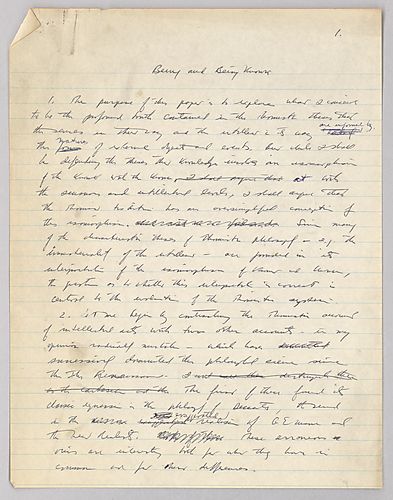 1.
Being and Being Known
1. The purpose of this paper is to explore what I conceive
to be the profound truth contained in the Thomistic thesis that
the senses in their way and the intellect in its way are informed by
the natures of external objects and events. But while I shall
be defending the thesis that knowledge involves an isomorphism
of the knower with the known, at both
the sensuous and intellectual levels, I shall argue that
the Thomistic tradition has an oversimplified conception of
this isomorphism. Since many
of the characteristic theses of Thomistic philosophy — e.g. the
immateriality of the intellect — are founded in its
interpretation of the isomorphism of knower and known,
the question as to whether this interpretation is correct is
central to the evaluation of the Thomistic system.
2. Let me begin by contrasting the Thomistic account
of intellectual acts with two other accounts — in my
opinion radically mistaken — which have
successively dominated the philosophical scene since
the Renaissance.
The first of these found its
classic expression in the philosophy of Descartes, the second
in the realism of G. E. Moore and
the New Realists. These erroneous
views are interesting both for what they have in
common and for their differences.